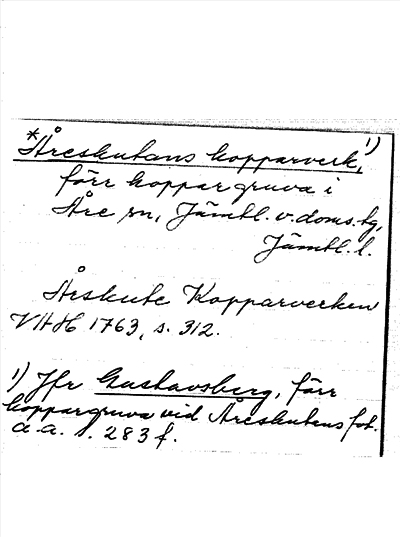 *Åreskutans kopparverk,¹)
förr koppargruva i
Åre sn, Jämtl. v. doms. tg,
Jämtl. l.
Årskute Kopparverken
VHH 1763, s. 312.
1) Jfr Gustavsberg, förr
koppargruva vid Åreskutans fot.
a.a. s. 283 f.